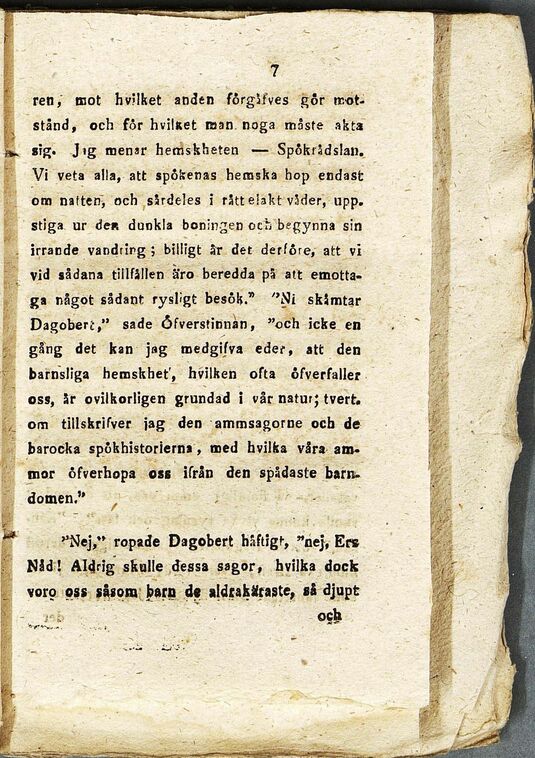 7
ren, mot hvilket anden förgäfves gör mot-
stånd, och för hvilket man noga måste akta
sig. Jag menar hemskheten — Spökrädslan.
Vi veta alla, att spökenas hemska hop endast
om natten, och särdeles i rätt elakt väder, upp-
stiga ur den dunkla boningen och begynna sin
irrande vandring; billigt är det derföre, att vi
vid sådana tillfällen äro beredda på att emotta-
ga något sådant rysligt besök." "Ni skämtar
Dagobert," sade Öfverstinnan, "och icke en
gång det kan jag medgifva eder, att den
barnsliga hemskhet, hvilken ofta öfverfaller
oss, är ovilkorligen grundad i vår natur; tvert-
om tillskrifver jag den ammsagorne och de
barocka spökhistorierna, med hvilka våra am-
mor öfverhopa oss ifrån den spädaste barn-
domen."
"Nej," ropade Dagobert häftigt, "nej, Ers
Nåd! Aldrig skulle dessa sagor, hvilka dock
voro oss såsom barn de aldrakäraste, så djupt
och